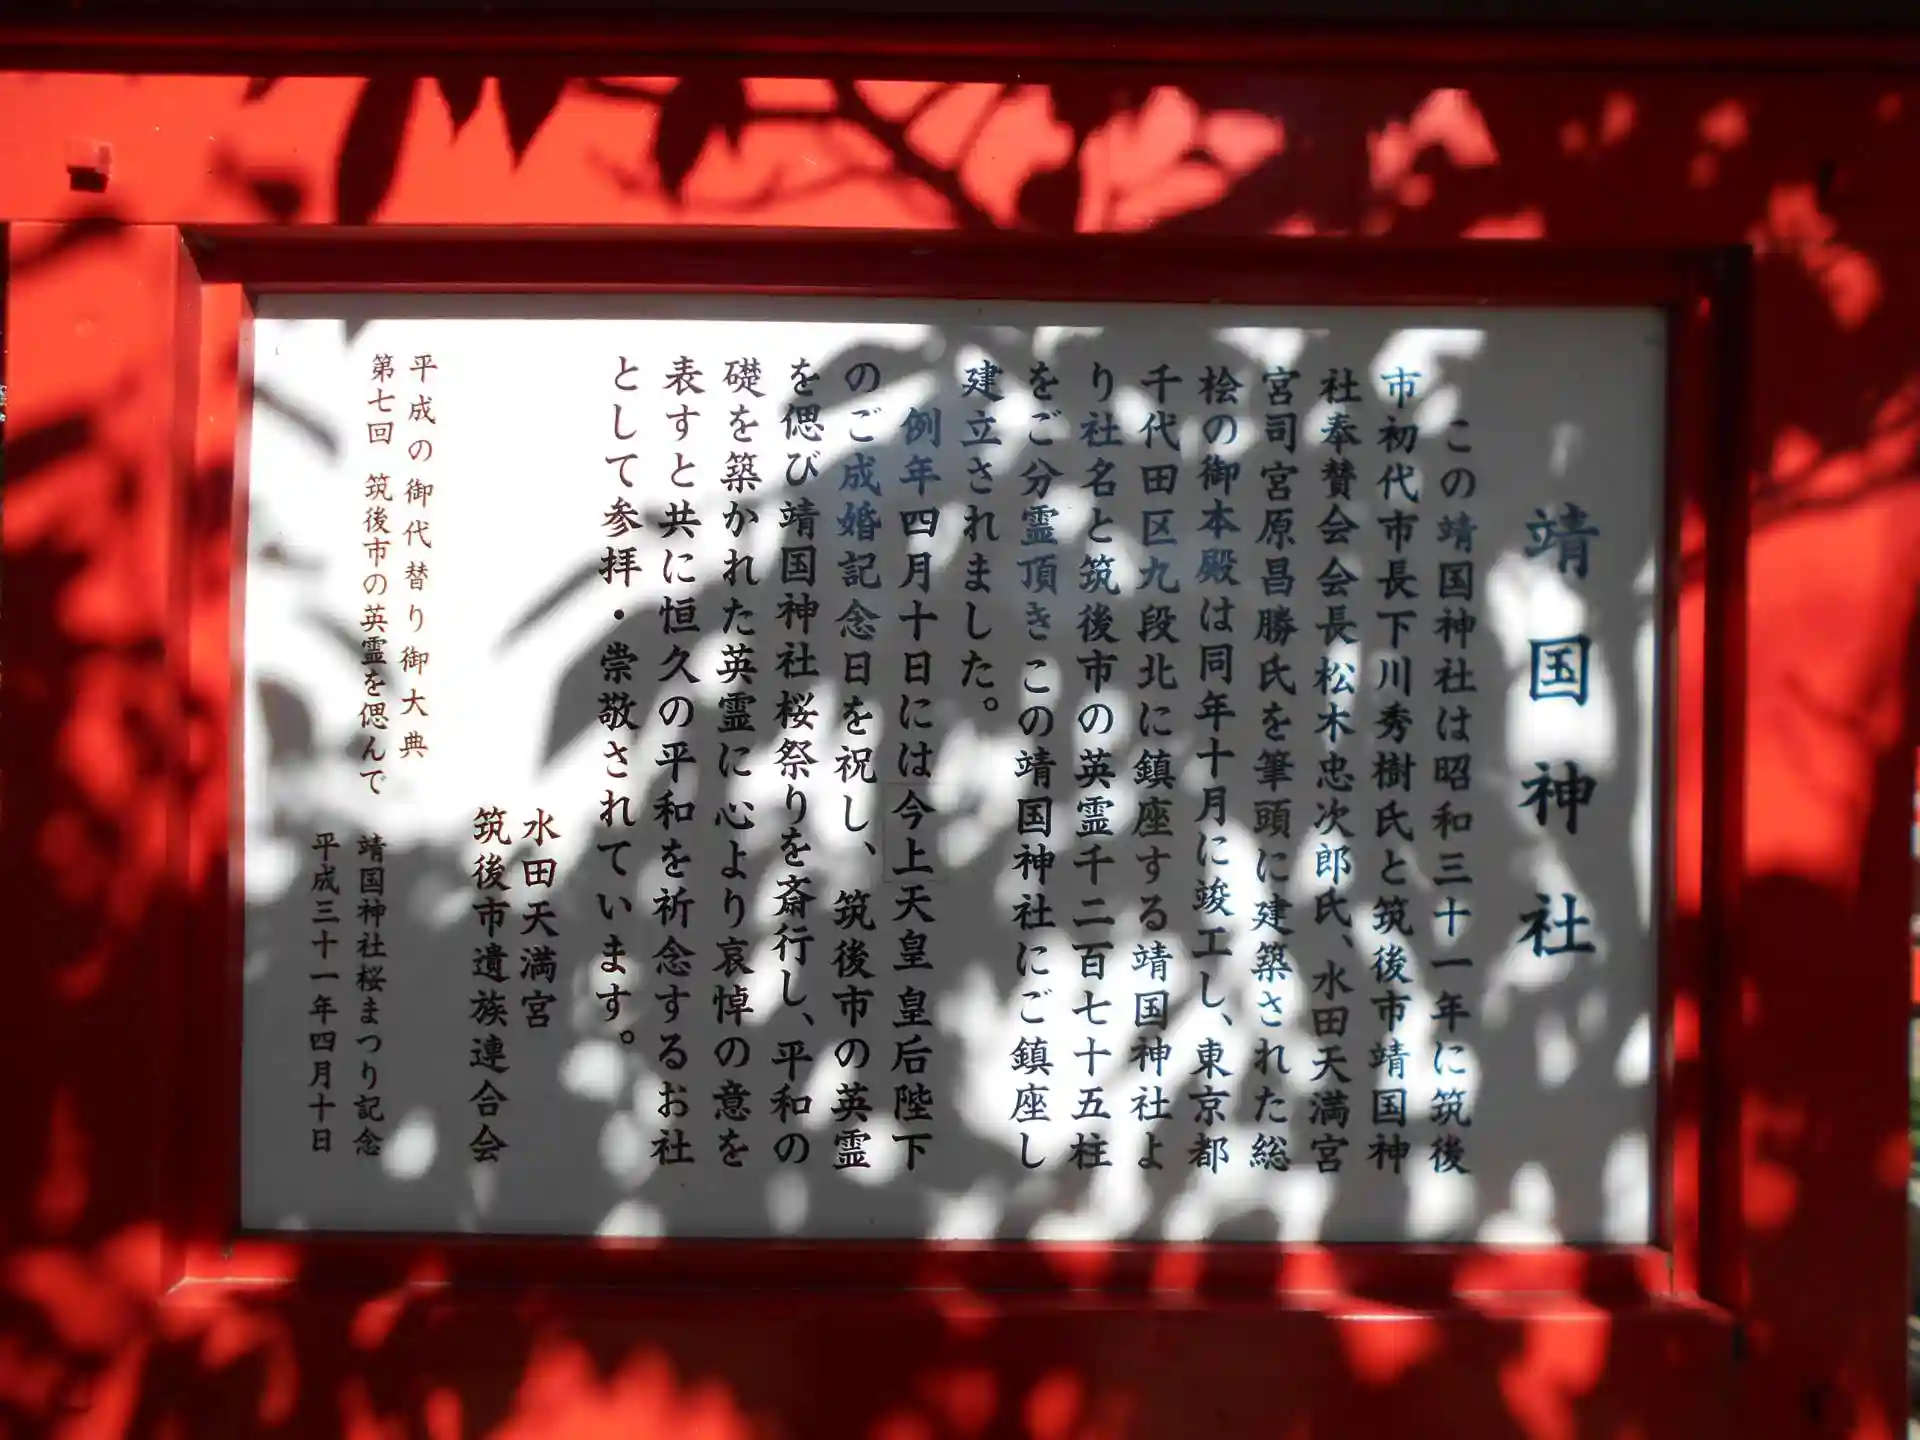 靖国神社
この靖国神社は昭和三十一年に筑後
市初代市長下川秀樹氏と筑後市靖国神
社奉賛会会長松木忠次郎氏、水田天満宮
宮司宮原昌勝氏を筆頭に建築された総
桧の御本殿は同年十月に竣工し、東京都
千代田区九段北に鎮座する靖国神社よ
り社名と筑後市の英霊千二百七十五柱
をご分霊頂きこの靖国神社にご鎮座し
建立されました。
例年四月十日には今上天皇皇后陛下
のご成婚記念日を祝し、筑後市の英霊
を偲び靖国神社桜祭りを斎行し、平和の
礎を築かれた英霊に心より哀悼の意を
表すと共に恒久の平和を祈念するお社
として参拝・崇敬されています。
水田天満宮
筑後市遺族連合会
平成の御代替り御大典
第七回 筑後市の英霊を偲んで
靖国神社桜まつり記念
平成三十一年四月十日